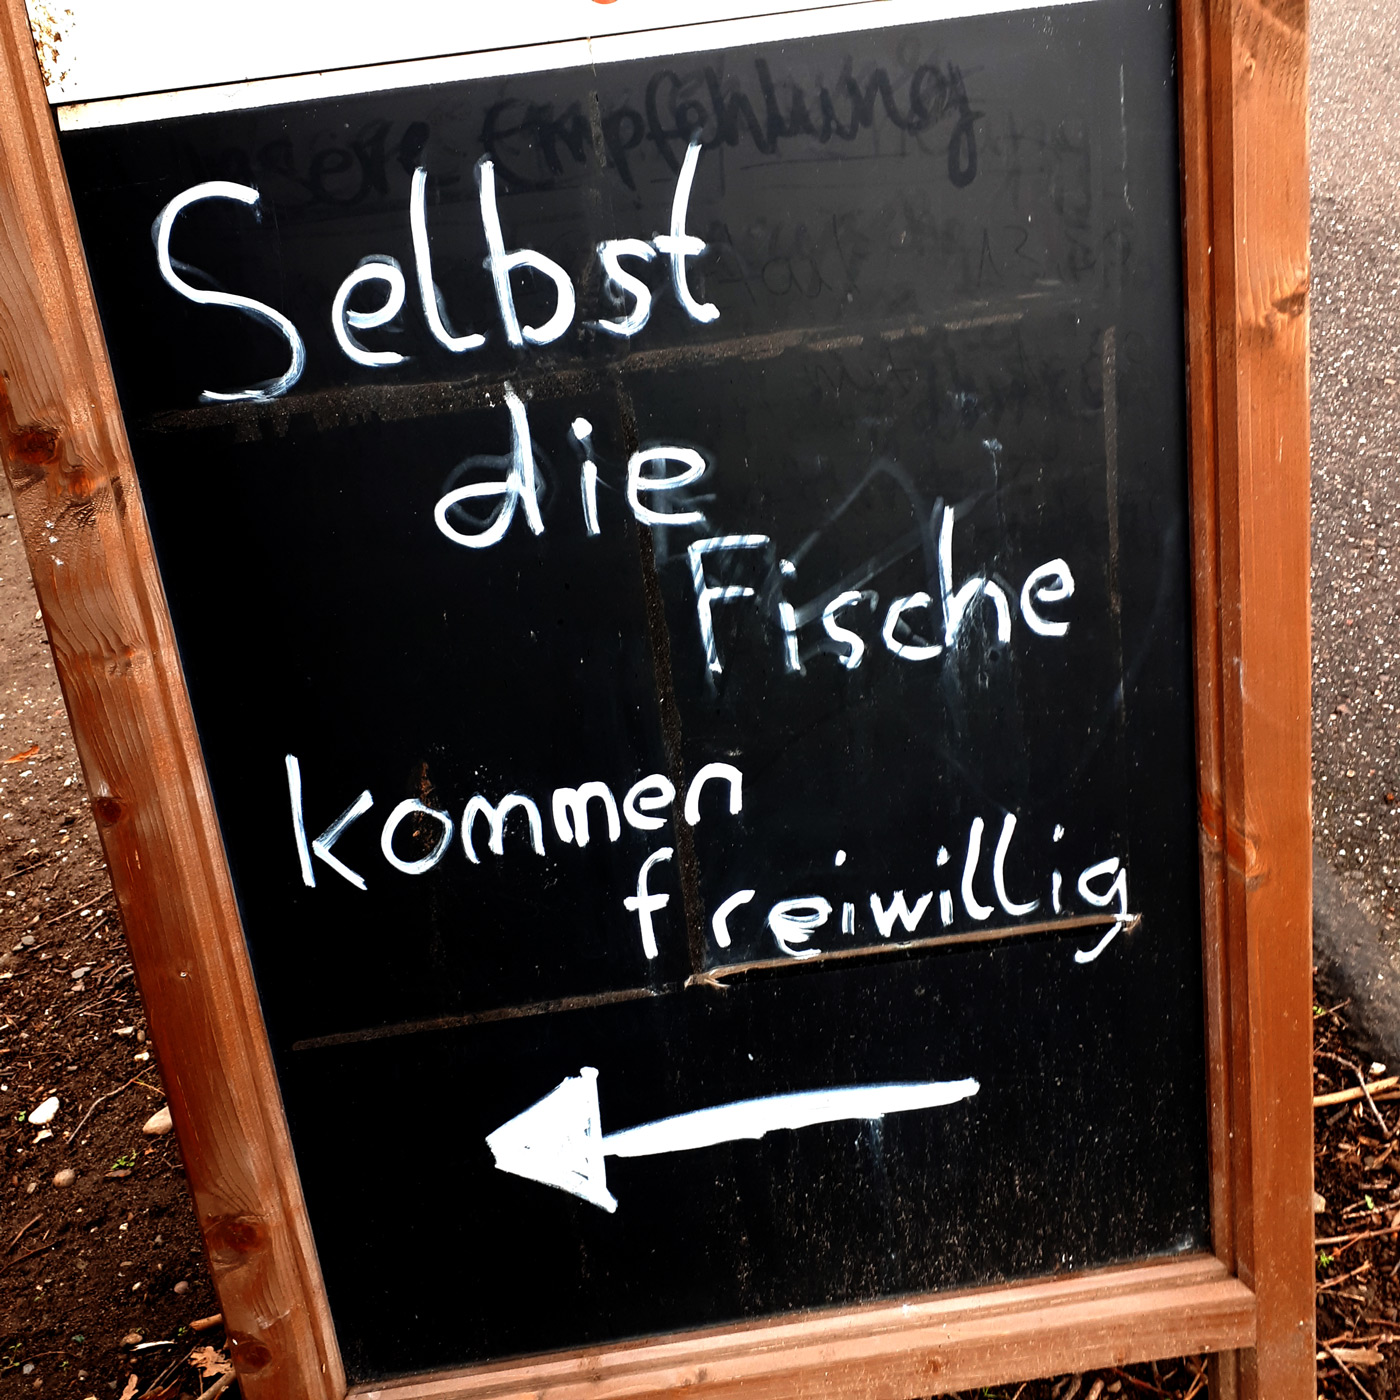 unsere Empfehlung
Selbst
die
Fische
kommen
freiwillig